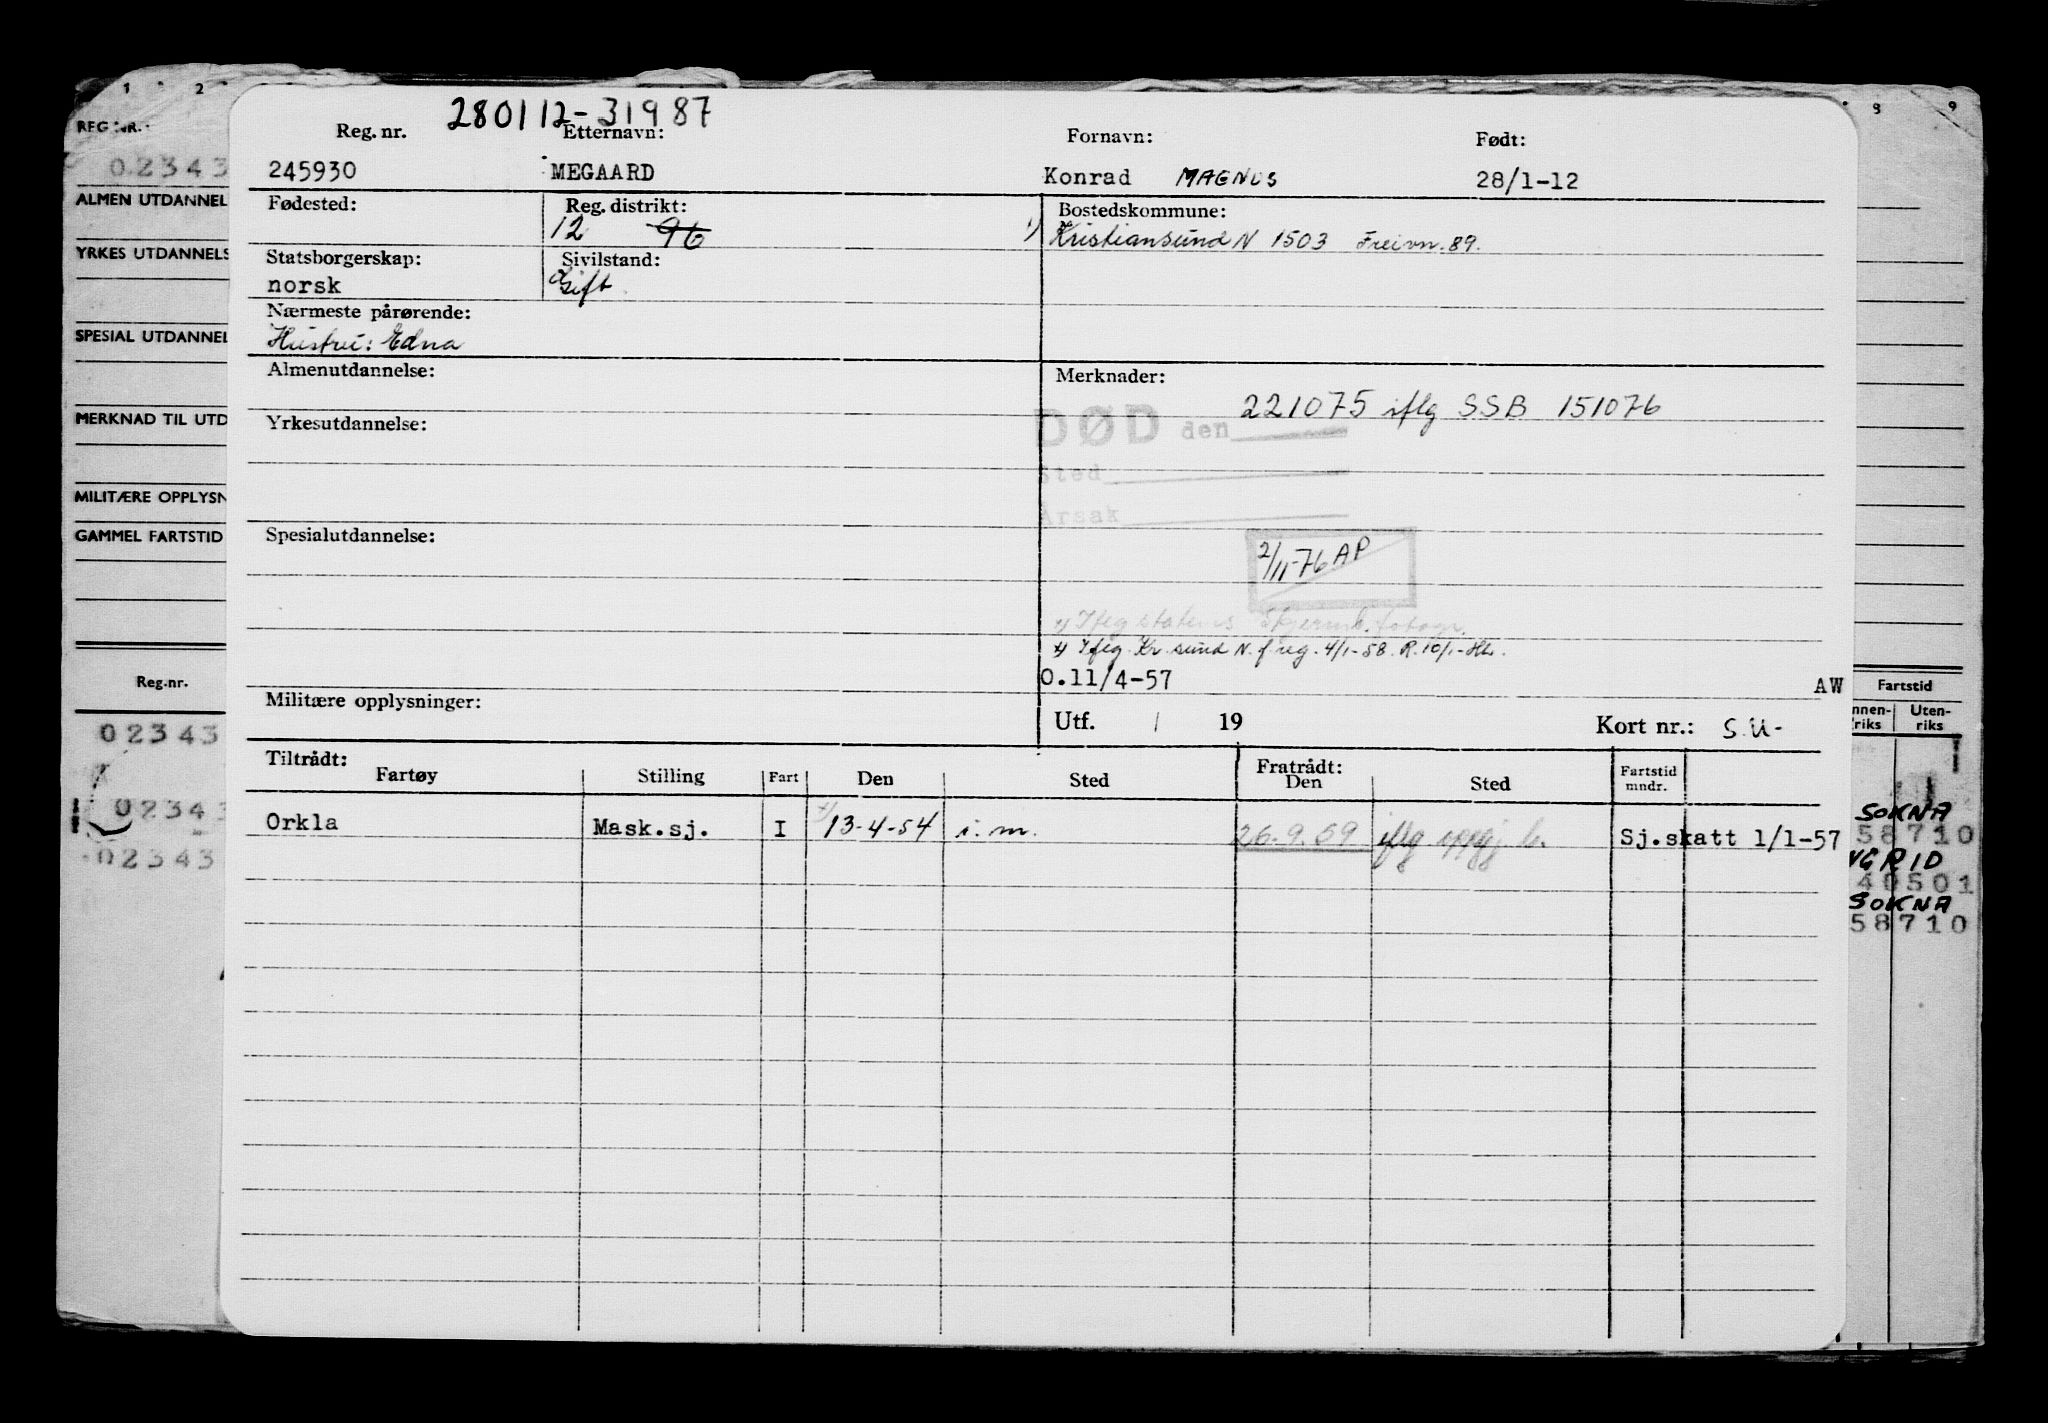 1 2 8 9
280112-31987
REG NR.:
Reg. nr. Etternavn: Fornavn: Født:
02343
245930 MEGAARD Konrad MAGNUS 28/1-12
ALMEN UTDANNEL
Fødested: Reg. distrikt: Bostedskommune:
12 96 1) Kristiansund N 1503 Freivn. 89.
YRKES UTDANNELS
Statsborgerskap: Sivilstand:
norsk Gift
Nærmeste pårørende:
SPESIAL UTDANNEL
Hustru: Edna
Almenutdannelse: Merknader:
221075 iflg SSB 151076
MERKNAD TIL UTD
Yrkesutdannelse: DØD den
Sted
MILITÆRE OPPLYSN
Årsak
GAMMEL FARTSTID
Spesialutdannelse:
2/11-76 AP
x) Iflg. Kr.sund N. f.reg. 4/1-58. R. 10/1-
O.11/4-57 AW
Reg.nr. Fartstid
Militære opplysninger:
Utf. / 19 Kort nr.: S.U-
nnen-riks Uten-riks
02343
Tiltrådt: Fratrådt:
Fartøy Stilling Fart Den Sted Den Sted Fartstid mndr.
02343 SOKNA
Orkla Mask.sj. I x) 13-4-54 i.m. 26.9.59 iflg Sj.skatt 1/1-57
58710
02343 NGRID
40501
SOKNA
58710